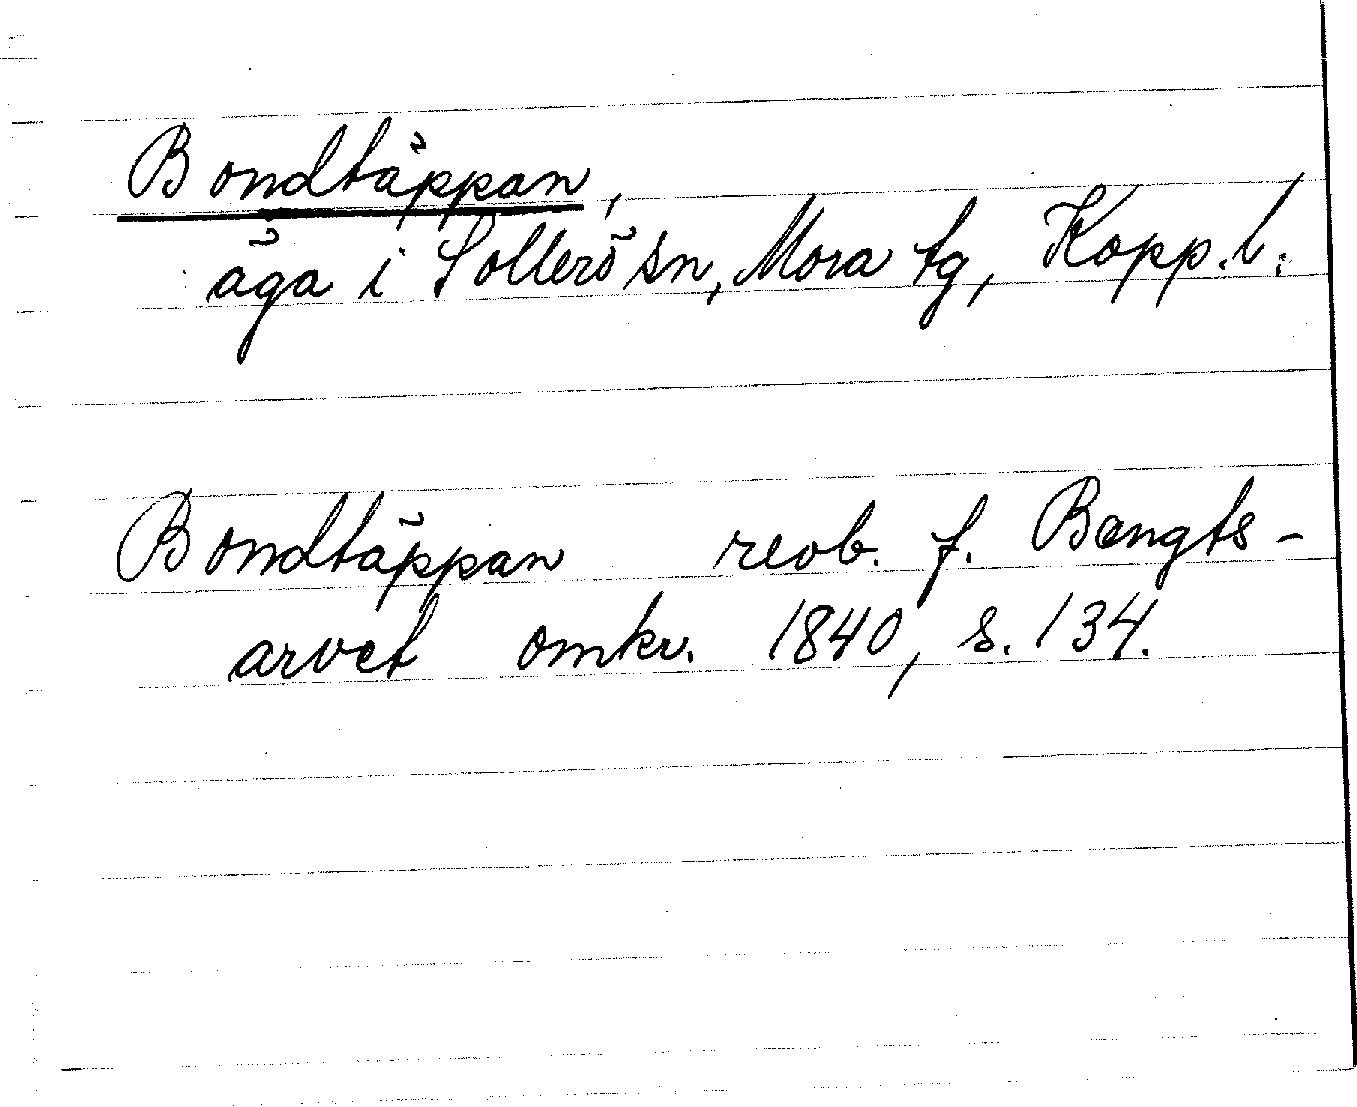 Bondtäppan,
äga i Sollerö sn, Mora tg, Kopp. l.
Bondtäppan revb. f. Bengts-
arvet omkr. 1840, s. 134.